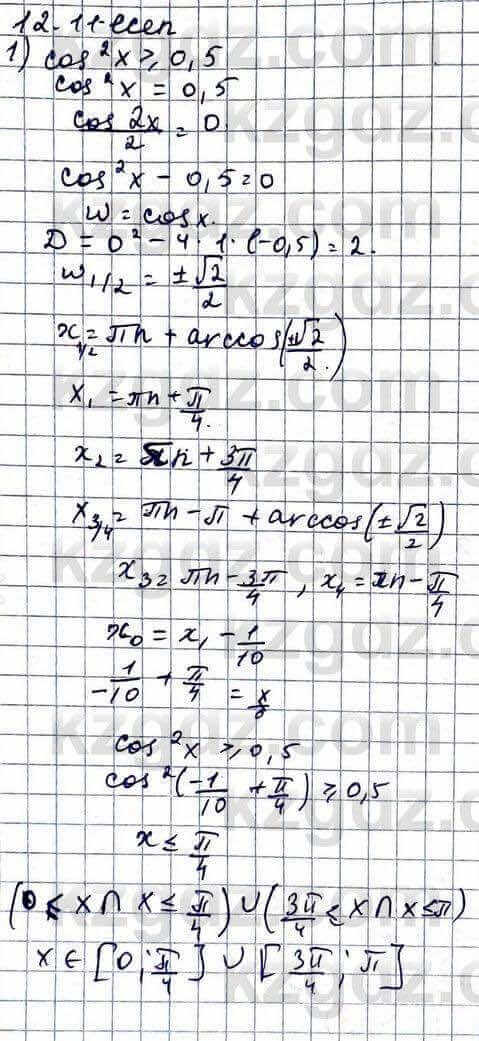 12-11-есеп
1) cos²x ≥ 0,5
cos²x = 0,5
cos 2x / 2 = 0.
cos²x - 0,5 = 0
w = cos x.
D = 0² - 4 · 1 · (-0,5) = 2.
w₁/₂ = ± √2 / 2
x₁/₂ = πn + arccos(±√2 / 2.)
x₁ = πn + π/4.
x₂ = πn + 3π/4
x₃/₄ = πn - π + arccos(± √2 / 2)
x₃ = πn - 3π/4 , x₄ = πn - π/4
x₀ = x₁ - 1/10
-1/10 + π/4 = x₀
cos²x ≥ 0,5
cos²(-1/10 + π/4) ≥ 0,5
x ≤ π/4
(0 ≤ x ∩ x ≤ π/4) ∪ (3π/4 ≤ x ∩ x ≤ π)
x ∈ [0; π/4] ∪ [3π/4; π]
kzgdz.com